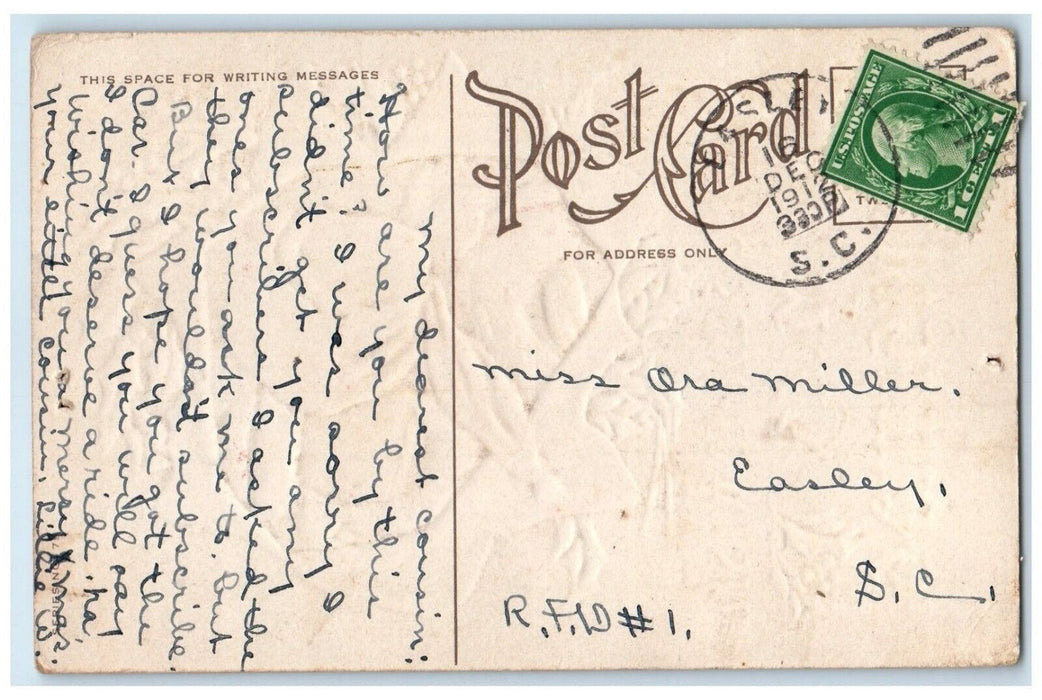 THIS SPACE FOR WRITING MESSAGES
My dearest cousin:
How are you by this
time? I was sorry I
did'nt get you any
subscribers I asked the
ones you ask me to. but
they would'nt subscribe.
But I hope you got the
Car. I guess you will say
I don't deserve a ride. ha!
Wishing you a mersy Xmas.
your little cousin, Lillie W.
SERIES NO.
Post Card
FOR ADDRESS ONLY
16
DEC
191
S. C.
U.S. POSTAGE
1 CENT 1
Miss Ora Miller.
Easley,
S. C.,
R.F.D #1.